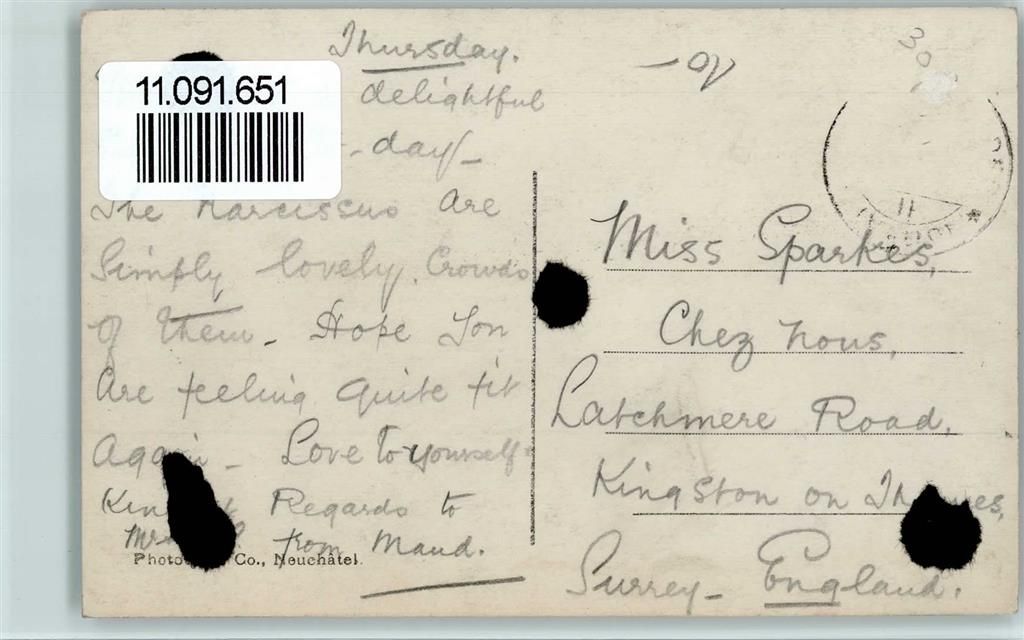 Thursday.
11.091.651
delightful
day –
The Narcissus are
Simply lovely. Crowds
of them – Hope You
Are feeling quite fit
Again – Love to yourself
Regards to
from Maud.
Co., Neuchâtel.
Miss Sparkes,
Chez Nous,
Latchmere Road,
Kingston on
Surrey – England.